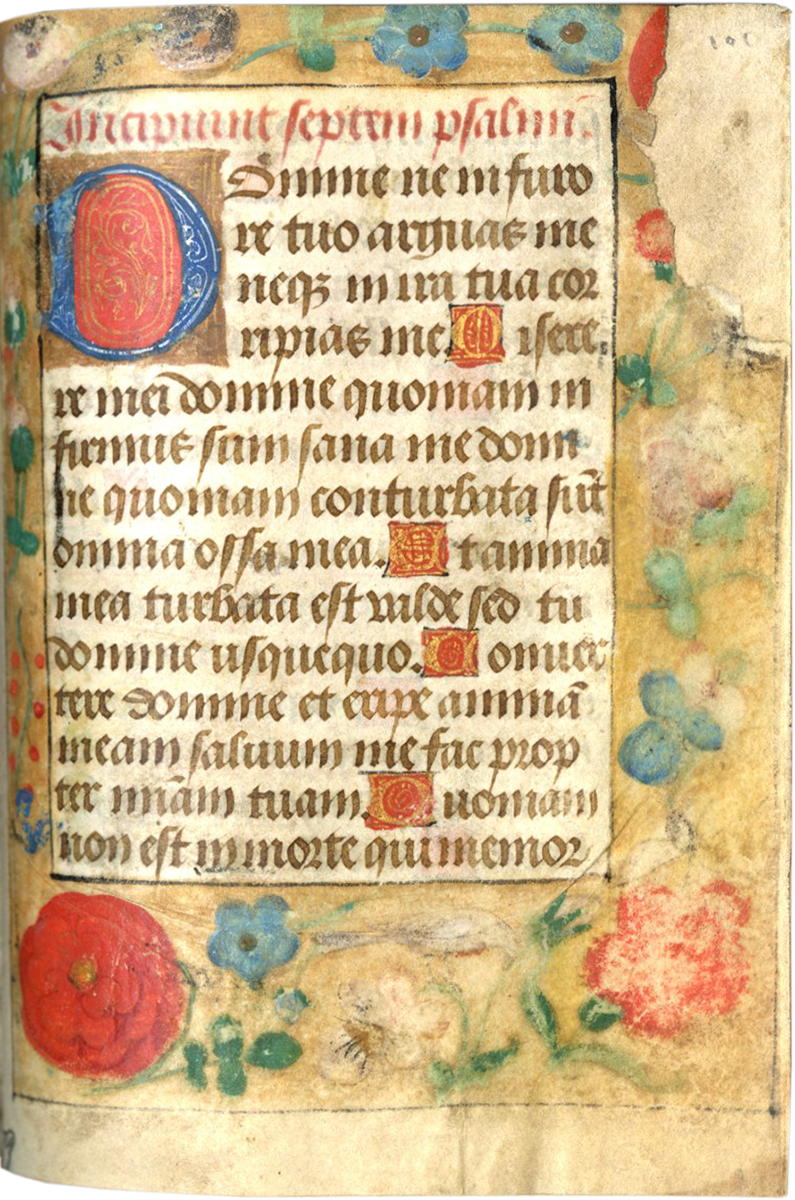 101
Incipiunt septem psalmi.
Domine ne in furo
re tuo arguas me
neqꝫ in ira tua cor
ripias me. Misere
re mei domine quoniam in
firmus sum sana me domi
ne quoniam conturbata sūt
omnia ossa mea. Et anima
mea turbata est valde sed tu
domine usquequo. Conuer
tere domine et eripe animā
meam saluum me fac prop
ter mīam tuam. Quoniam
non est in morte qui memor